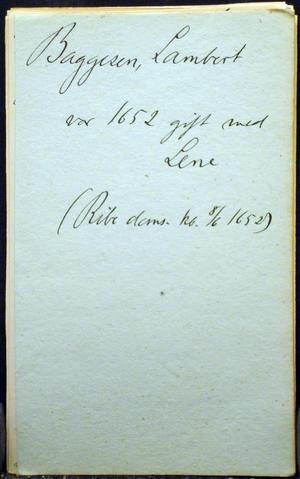 Baggesen, Lambert
var 1652 gift med
Lene
(Ribe doms. kb. 8/6 1652)